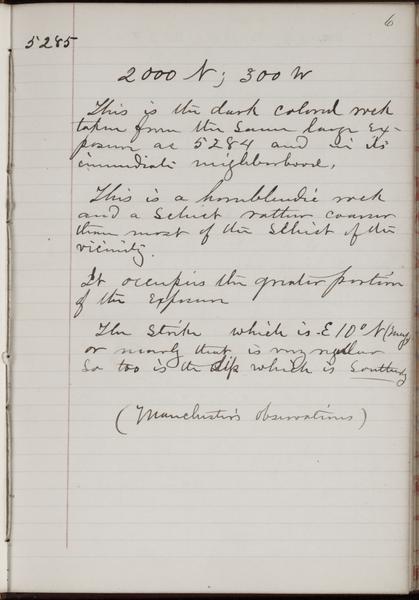 6
5285
2000 N; 300 W
This is the dark colored rock
taken from the same large ex-
posure as 5284 and in its
immediate neighborhood.
This is a hornblendic rock
and a Schist rather coarser
than most of the Schist of the
vicinity.
It occupies the greater portion
of the exposure
The Strike which is E 10° N
or nearly that is very regular
So too is the dip which is Southerly
(Manchester's observations)